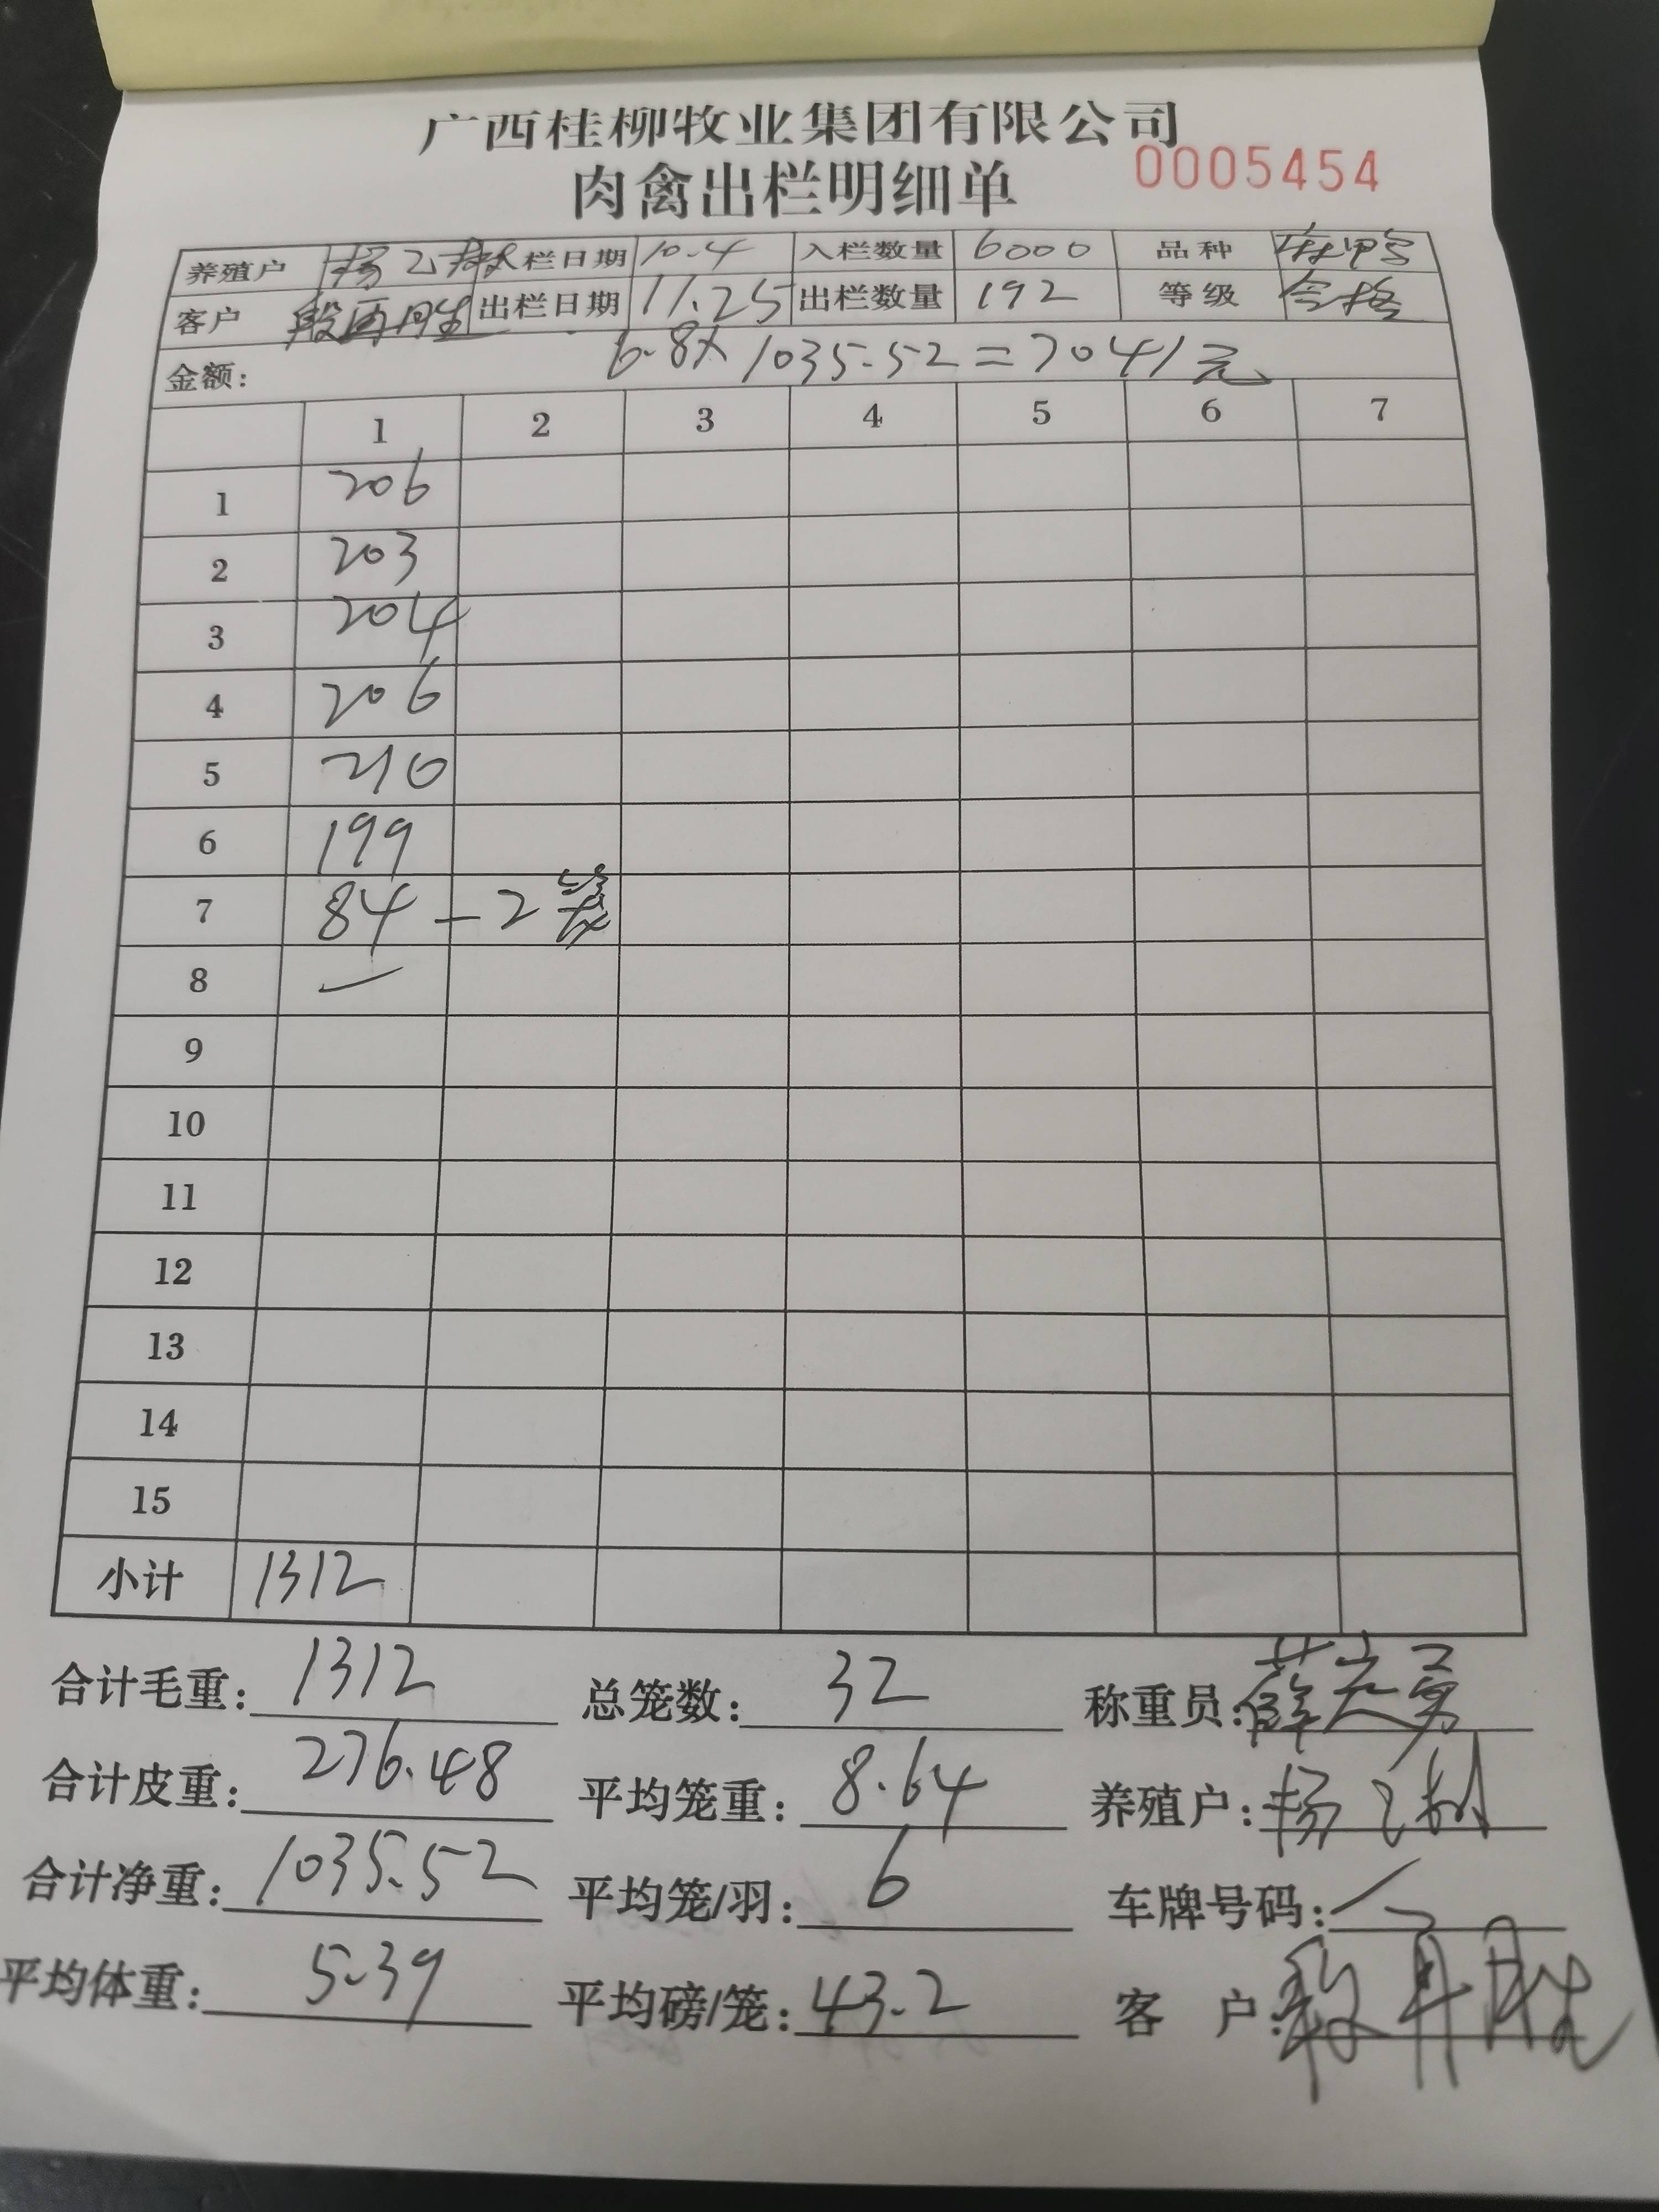 广西桂柳牧业集团有限公司
肉禽出栏明细单 0005454
养殖户 杨乙树 入栏日期 10.4 入栏数量 6000 品种
客户 段再胜 出栏日期 11.25 出栏数量 192 等级 合格
金额: 6.8x1035.52=7041元
1 2 3 4 5 6 7
1 206
2 203
3 204
4 206
5 210
6 199
7 84-2笼
8 一
9
10
11
12
13
14
15
小计 1312
合计毛重: 1312 总笼数: 32 称重员:
合计皮重: 276.48 平均笼重: 8.64 养殖户: 杨乙树
合计净重: 1035.52 平均笼/羽: 6 车牌号码:
平均体重: 5.39 平均磅/笼: 43.2 客户: 段再胜